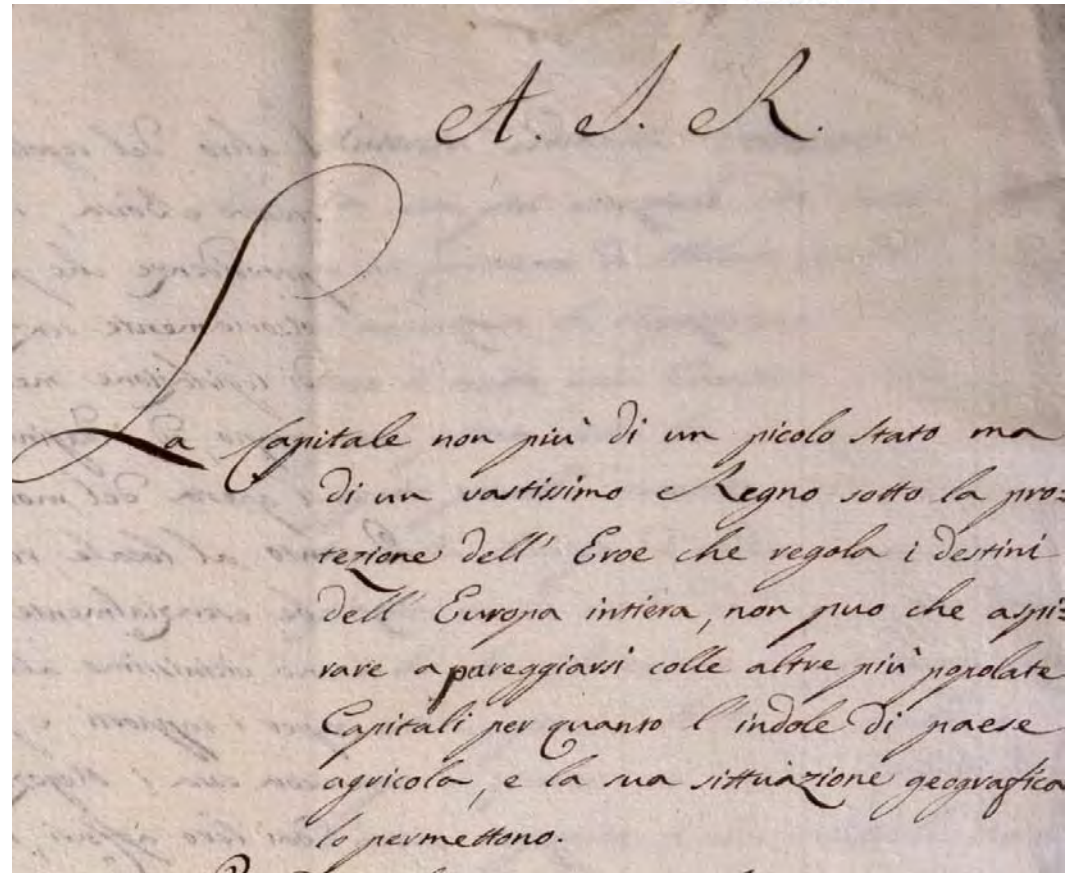 A. S. R.
La Capitale non più di un picolo stato ma
di un vastissimo Regno sotto la pro=
tezione dell' Eroe che regola i destini
dell' Europa intiera, non puo che aspi=
rare a pareggiarsi colle altre più popolate
Capitali per quanto l' indole di paese
agricola, e la sua sittuazione geografica
lo permettono.